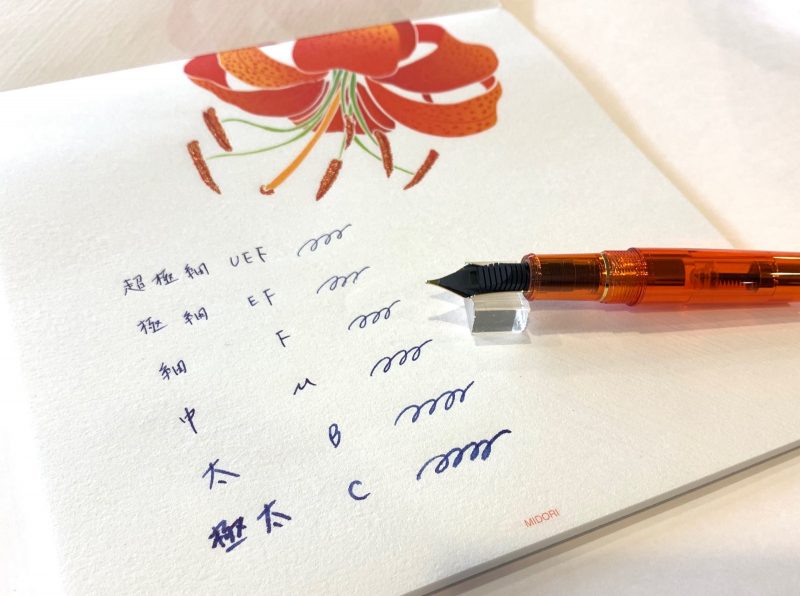 超極細 UEF
極細 EF
細 F
中 M
太 B
極太 C
MIDORI